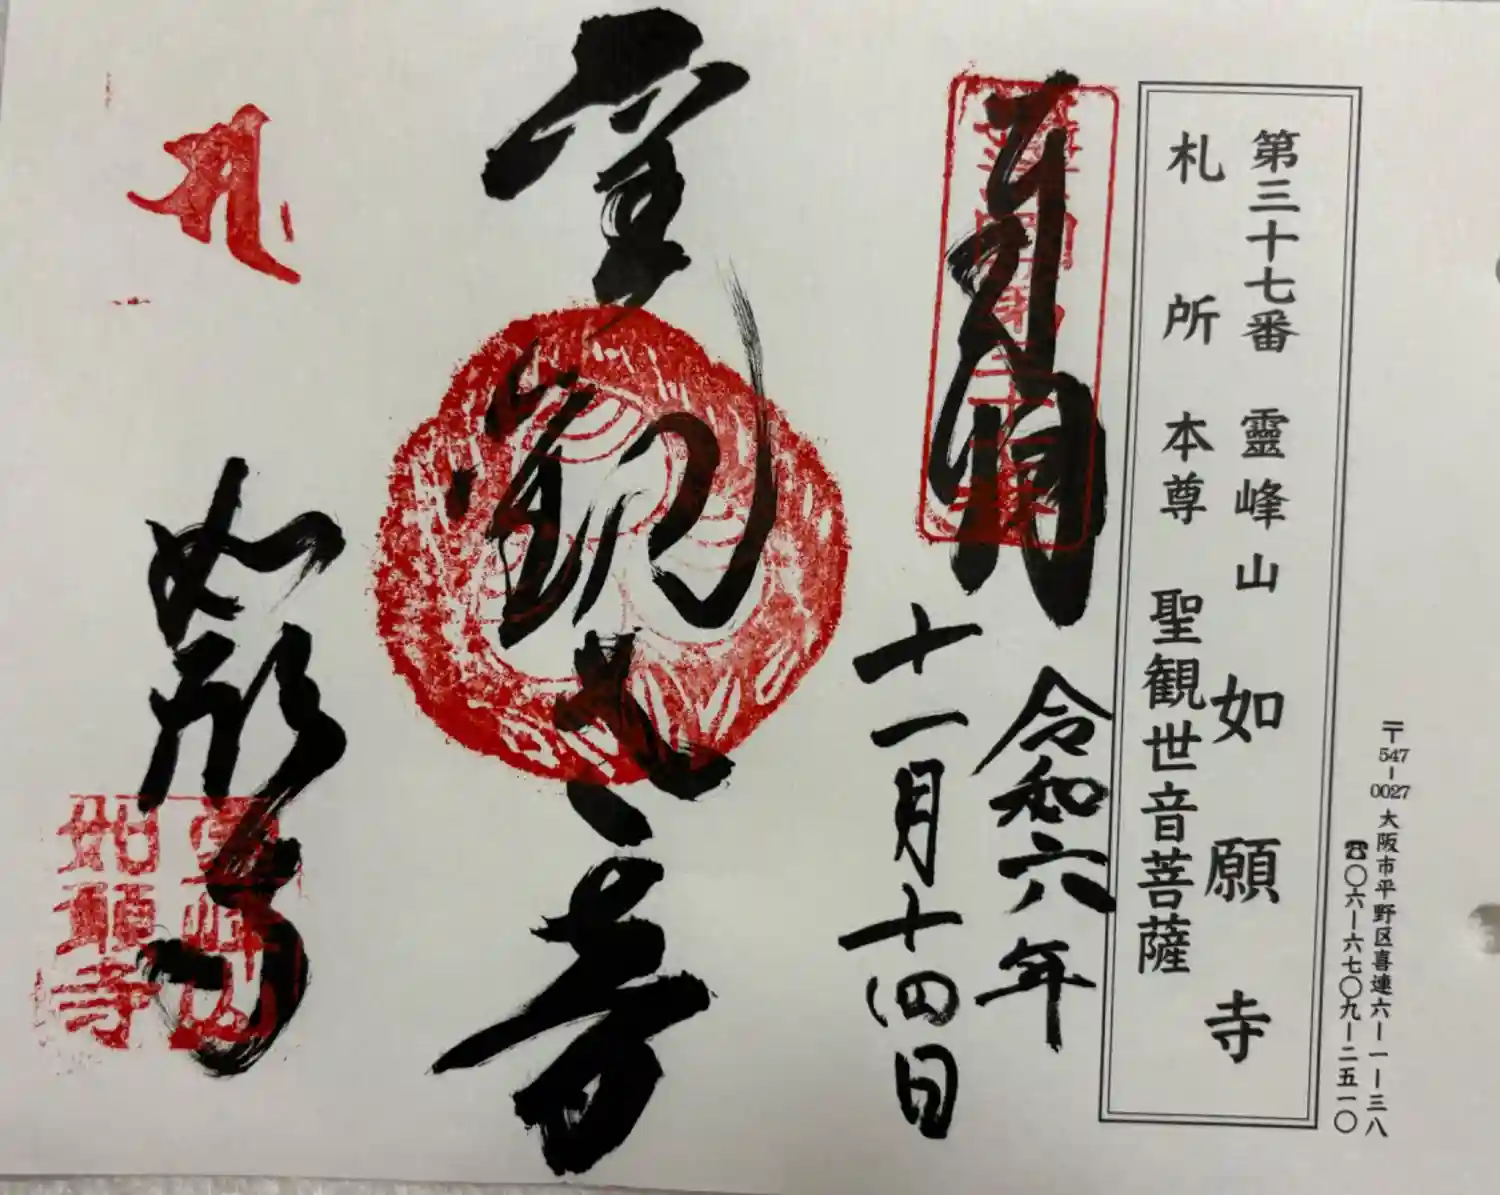 〒547-0027 大阪市平野区喜連六-一-三八
☎〇六-六七〇九-二五一〇
第三十七番 靈峰山 如願寺
札所本尊 聖観世音菩薩
奉拝
令和六年
十一月十四日
如願寺
靈峰山
如願寺